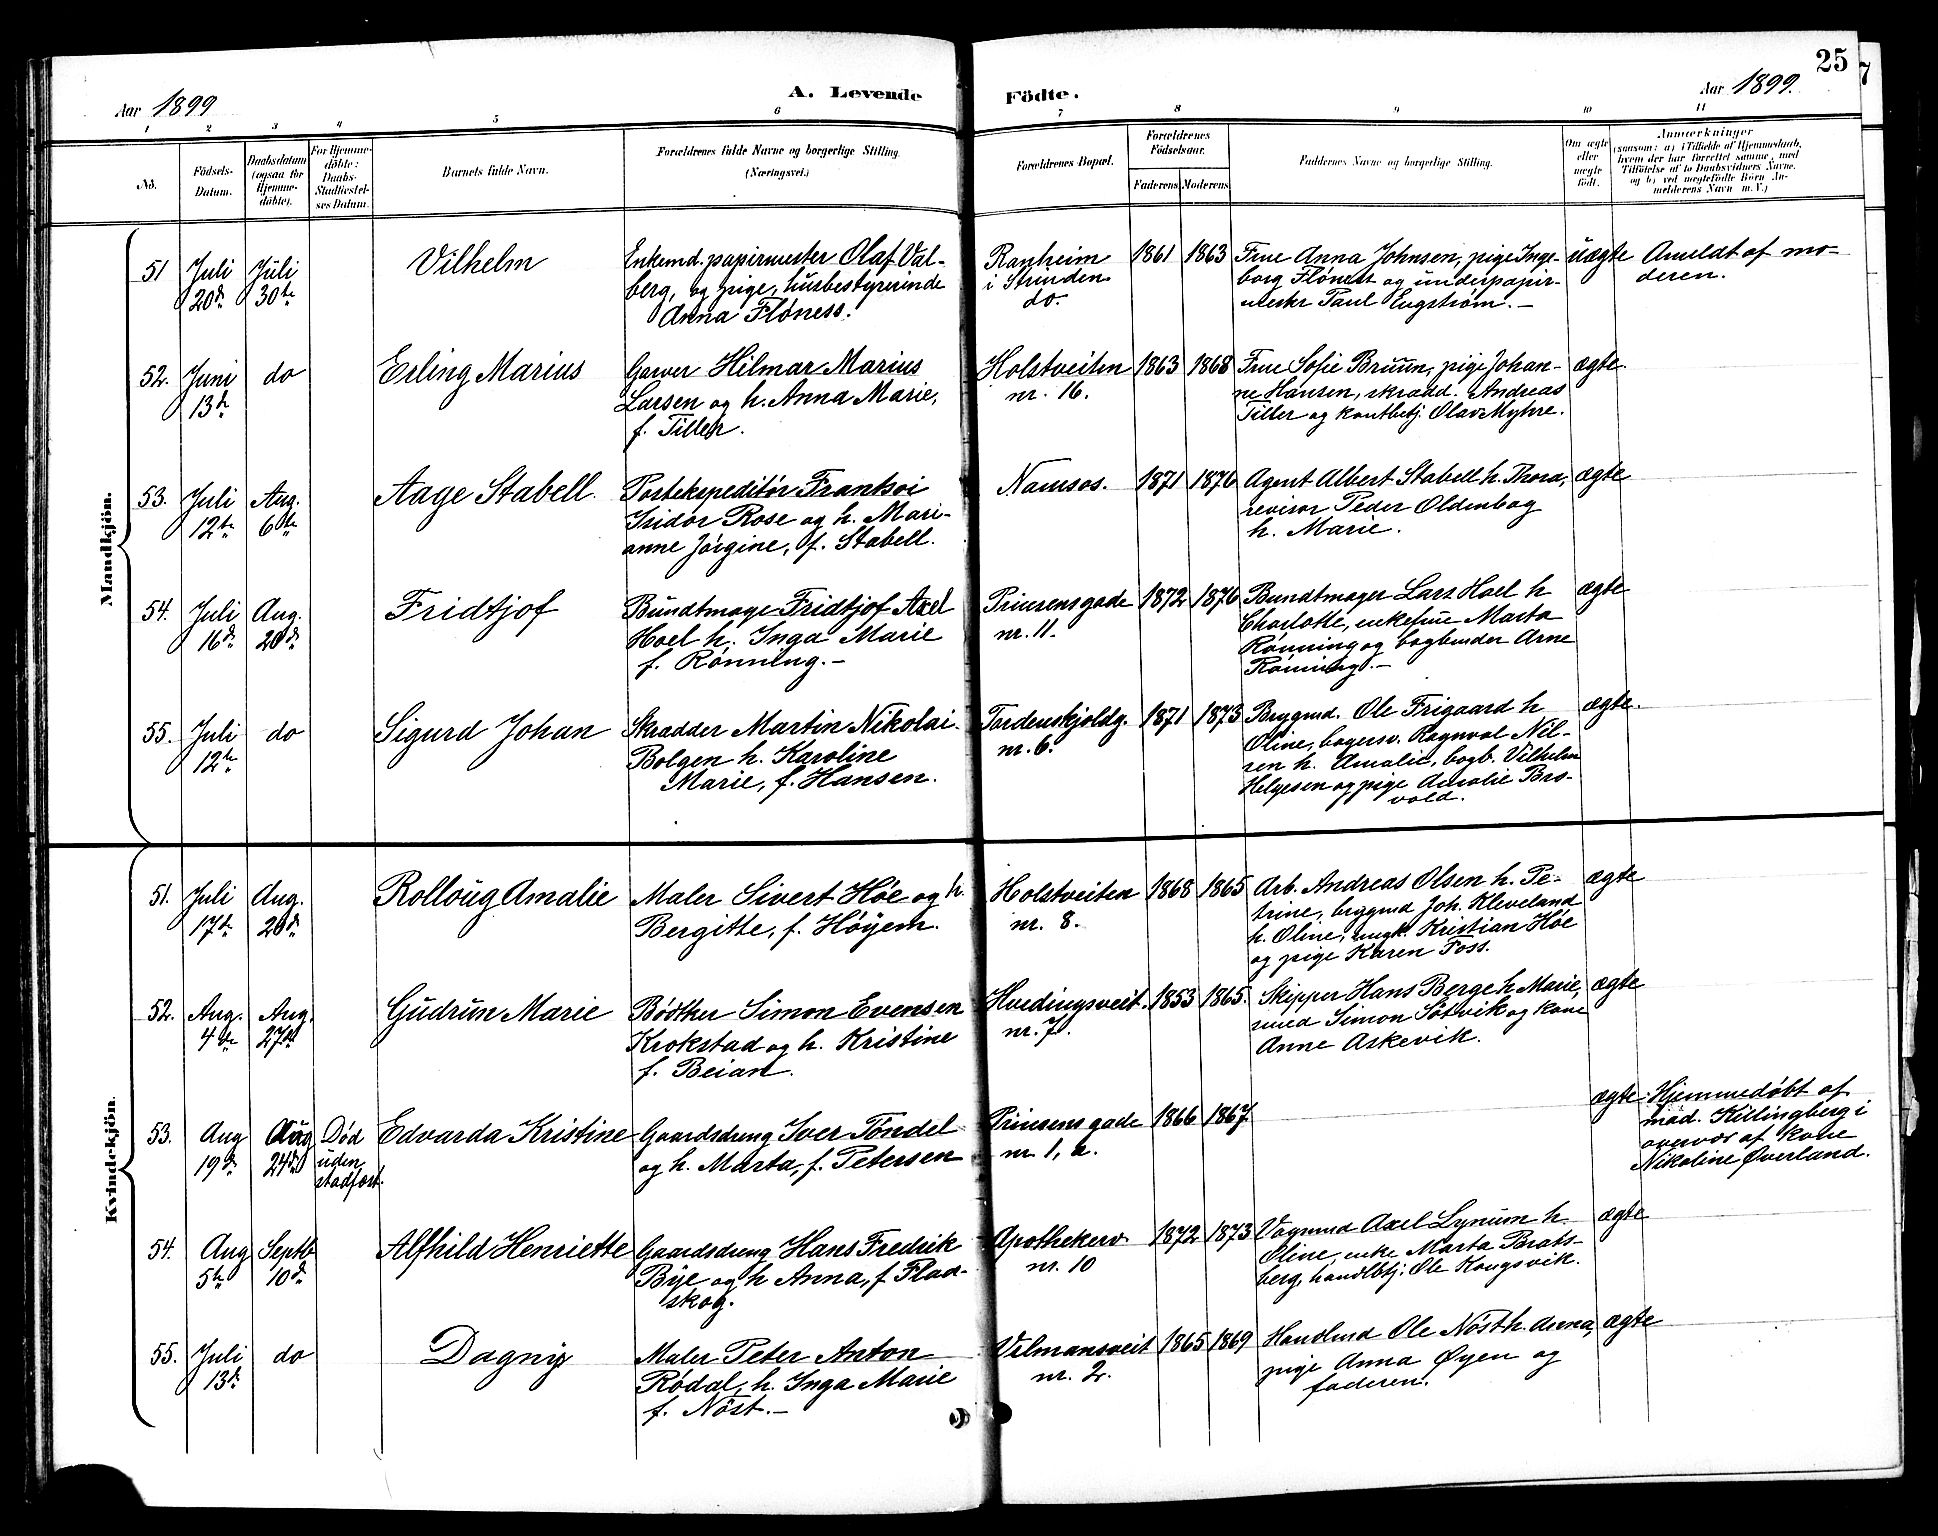 25
7
Aar 1899
A. Levende Födte.
Aar 1899.
1 2 3 4 5 6 7 8 9 10 11
No.
Födsels-
Datum.
Daabsdatum
(ogsaa for
Hjemme-
döbte).
For Hjemme-
döbte:
Daabs-
Stadfæstel-
ses Datum.
Barnets fulde Navn.
Forældrenes fulde Navne og borgerlige Stilling.
(Næringsvei.)
Forældrenes Bopæl.
Forældrenes
Födselsaar.
Faderens
Moderens
Faddernes Navne og borgerlige Stilling.
Om ægte
eller
uægte
født.
Anmærkninger
(saasom: a) i Tilfælde af Hjemmedaab,
hvem der har forrettet samme, med
Tilföielse af to Daabsvidners Navne.
og b) ved uægtefödte Börn An-
melderens Navn m. V.)
Mandkjön.
51
Juli
20de
Juli
30te
Vilhelm
Enkemd. papirmester Olaf Val-
berg, og pige, husbestyrerinde
Anna Fløness.
Ranheim
i Strinden
do.
1861
1863
Frue Anna Johnsen, pige Inge-
borg Fløness og underpapir-
mestr Paul Engstrøm. -
uægte
Ameldt af mo-
deren.
52.
Juni
13de
do
Erling Marius
Garver Hilmar Marius
Larsen og h. Anna Marie,
f. Tiller.
Holstveiten
nr. 16.
1863
1868
Frue Sofie Bruun, pige Johan-
ne Hansen, skrædd. Andreas
Tiller og kontbetj. Olav Myhre.
ægte.
53.
Juli
12te
Aug.
6te
Aage Stabell.
Postekspeditør Frantsoi
Isidor Rose og h. Mari-
anne Jørgine, f. Stabell.
Namsos.
1871
1876
Agent Albert Stabell h. Thora,
revisor Peder Oldenbog
h. Marie.
ægte
54.
Juli
16de
Aug.
20de
Fridtjof
Bundtmage Fridtjof Axel
Hoel h. Inga Marie
f. Rønning. -
Prinsensgade
nr. 11.
1872
1876
Bundtmager Lars Hoel h
Charlotte, enkefrue Marta
Rønning og bogbinder Arne
Rønning. -
ægte
55.
Juli
12te
do
Sigurd Johan
Skrædder Martin Nikolai
Bolgen h. Karoline
Marie, f. Hansen.
Tordenskjoldg.
nr. 6.
1871
1873
Brygmd. Ole Frigaard h
Oline, bagersv. Ragnval Nil-
sen h. Amalie, bogb. Vilhelm
Helgesen og pige Amalie Bro-
vold.
ægte.
Kvindekjön.
51.
Juli
17de
Aug.
20de
Rolloug Amalie
Maler Sivert Høe og h.
Bergitte, f. Høyem.
Holstveiten
nr. 8.
1868
1865
Arb. Andreas Olsen h. Pe-
trine, brygmd Joh. Kleveland
h. Oline, ungk. Kristian Høe
og pige Karen Foss.
ægte
52.
Aug.
4de
Aug.
27de
Gudrun Marie
Bødker Simon Evensen
Krokstad og h. Kristine
f. Beian.
Hvedingsveit.
nr. 7.
1853
1865.
Skipper Hans Berge h Marie,
smed Simon Søtvik og kone
Anne Askevik.
ægte
53.
Aug
19de
Aug
24de
Død
uden
stadfæst.
Edvarda Kristine
Gaardsdreng Iver Tøndel
og h. Marta, f. Petersen
Prinsensgade
nr 1, a.
1866
1867
ægte
Hjemmedøbt af
mad. Killingberg i
overvær af kone
Nikoline Øverland.
54.
Aug
5te
Septb
10de
Alfhild Henriette
Gaardsdreng Hans Fredrik
Bye og h Anna, f. Flad-
skog.
Apothekerv.
nr. 10
1872
1873
Vognmd Axel Lynum h.
Oline, enke Marta Brats-
berg, handlbtj. Ole Kongsvik.
ægte
55.
Juli
13de
do
Dagny
Maler Peter Anton
Rødal, h. Inga Marie
f. Nøst. -
Vilmansveit
nr. 2.
1865
1869
Handlmd Ole Nøst h. Anna,
pige Anna Øyen og
faderen.
ægte